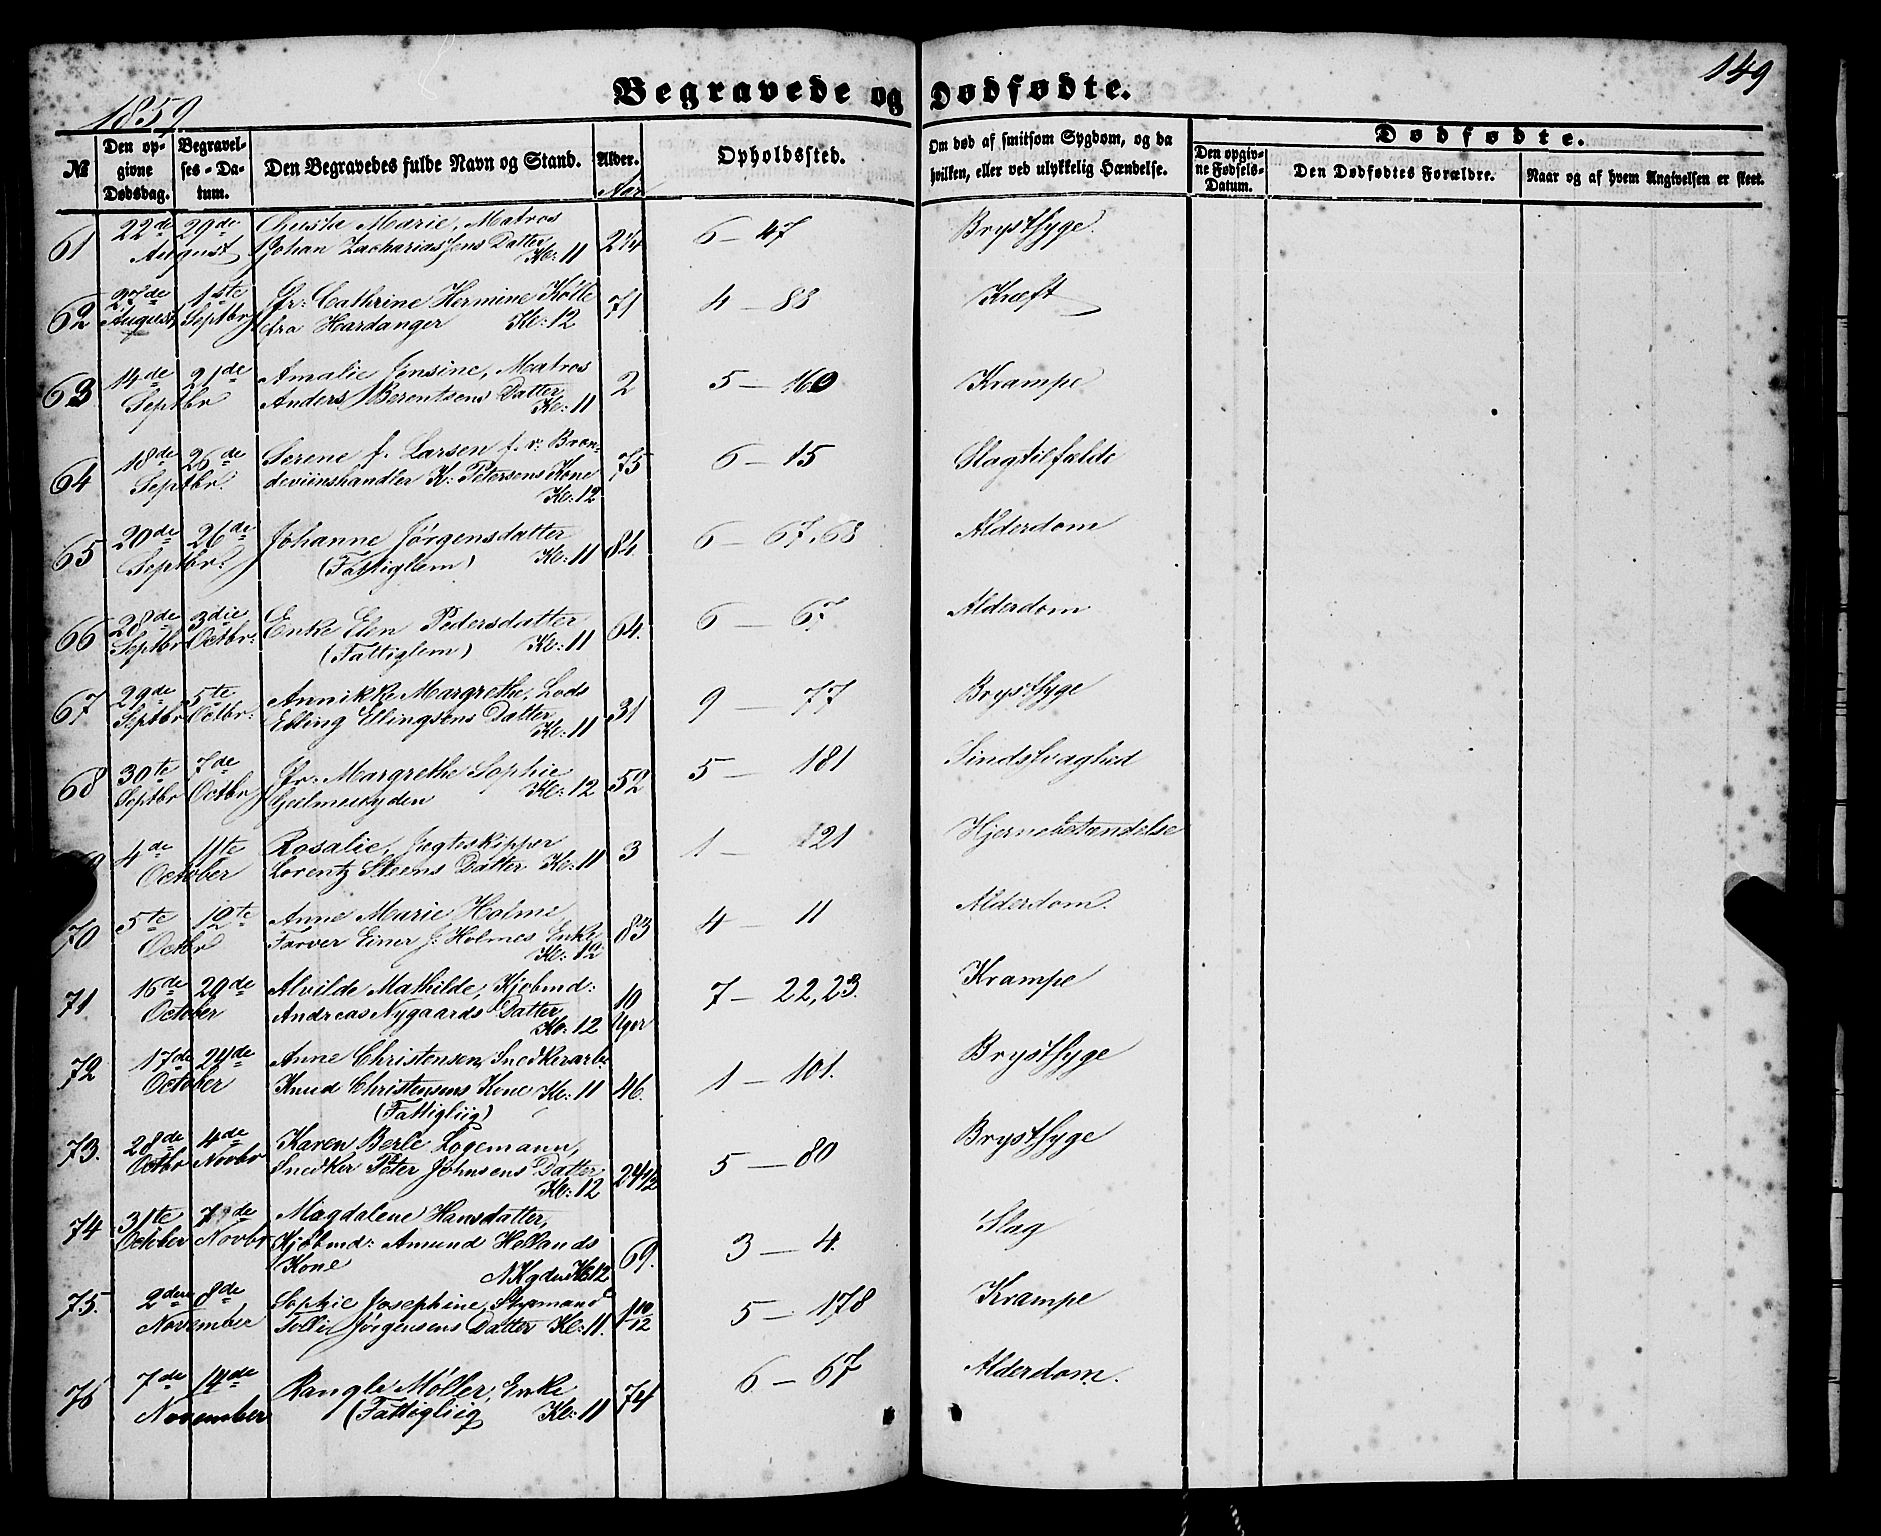 149
1859
Begravede og Dødfødte.
№
Den op-
givne
Dødsdag.
Begravel-
ses-Da-
tum.
Den Begravedes fulde Navn og Stand.
Alder.
Aar
Opholdssted.
Om død af smitsom Sygdom, og da
hvilken, eller ved ulykkelig Hændelse.
Dødfødte.
Den opgiv-
ne Fødsels-
Datum.
Den Dødfødtes Forældre.
Naar og af hvem Angivelsen er skeet.
61 22de 29de Marie, Matros 6 – 47 Brystsyge.
August Johan Zachariassens Datter Kl: 11 2 1/4
62 27de 1ste Jfr: Cathrine Hermine Kölle 71 4 – 88 Kræft
August Septbr fra Hardanger Kl: 12
63 14de 21de Amalie Jensine, Matros 2 5 – 160 Krampe
Septbr Anders Berentsens Datter Kl: 11
64 18de 26de Serene f. Larsen f. v: Bræn- 75 6 – 15 Slagtilfælde
Septbr. deviinshandler K: Petersens Kone
Kl: 12
65 20de 26de Johanne Jörgensdatter 84. 6 – 67,68 Alderdom
Septbr. (Fattiglem) Kl: 11
66 28de 3die Enke Elen Pedersdatter 64. 6 – 67. Alderdom
Septbr Octbr: (Fattiglem) Kl: 11
67 29de 5te Annikke Margrethe, Lods 31 9 – 77 Brystsyge
Septbr Octbr: Elling Ellingsens Datter Kl: 11
68 30te 7de Jfr. Margrethe Sophie 52 5 – 181 Sindssvaghed
Septbr Octbr Gjelmeuyden Kl: 12
4de 11te Rosalie, Jagteskipper 3 1 – 121 Hjernebetændelse
October Lorentz Steens Datter Kl: 11
70 5te 12te Anne Marie Holme, 83 4 – 11 Alderdom.
Octbr Farver Einer J: Holmes Enke
Kl: 12
71 16de 20de Alvilde Mathilde, Kjöbmd: 10 7 – 22,23. Krampe
October Andreas Nygaards Datter Uger
Kl: 12
72 17de 24de Anne Christensen, Snedkerarb: 1 – 101. Brystsyge
October Knud Christensens Kone Kl: 11 46.
(Fattigliig)
73. 28de 4de Karen Berle Logemann, 5 – 80 Brystsyge
Octbr Novbr Snedker Peter Johnsens Datter 24 1/2
Kl: 12
74 31te 7de Magdalene Hansdatter, 3 – 4. Slag
October Novbr Kjöbmd: Amund Hellands 69.
Kone Kl 12
75. 2den 8de Sophie Josephine, Styrmand 1 10/12 5 – 178 Krampe
November Jörgensens Datter Kl: 11.
76 7de 14de Rangle Møller, Enke 74 6 – 67 Alderdom.
November (Fattigliig Kl: 11